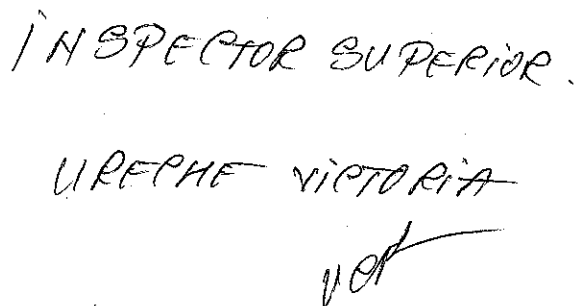 INSPECTOR SUPERIOR.
URECHE VICTORIA